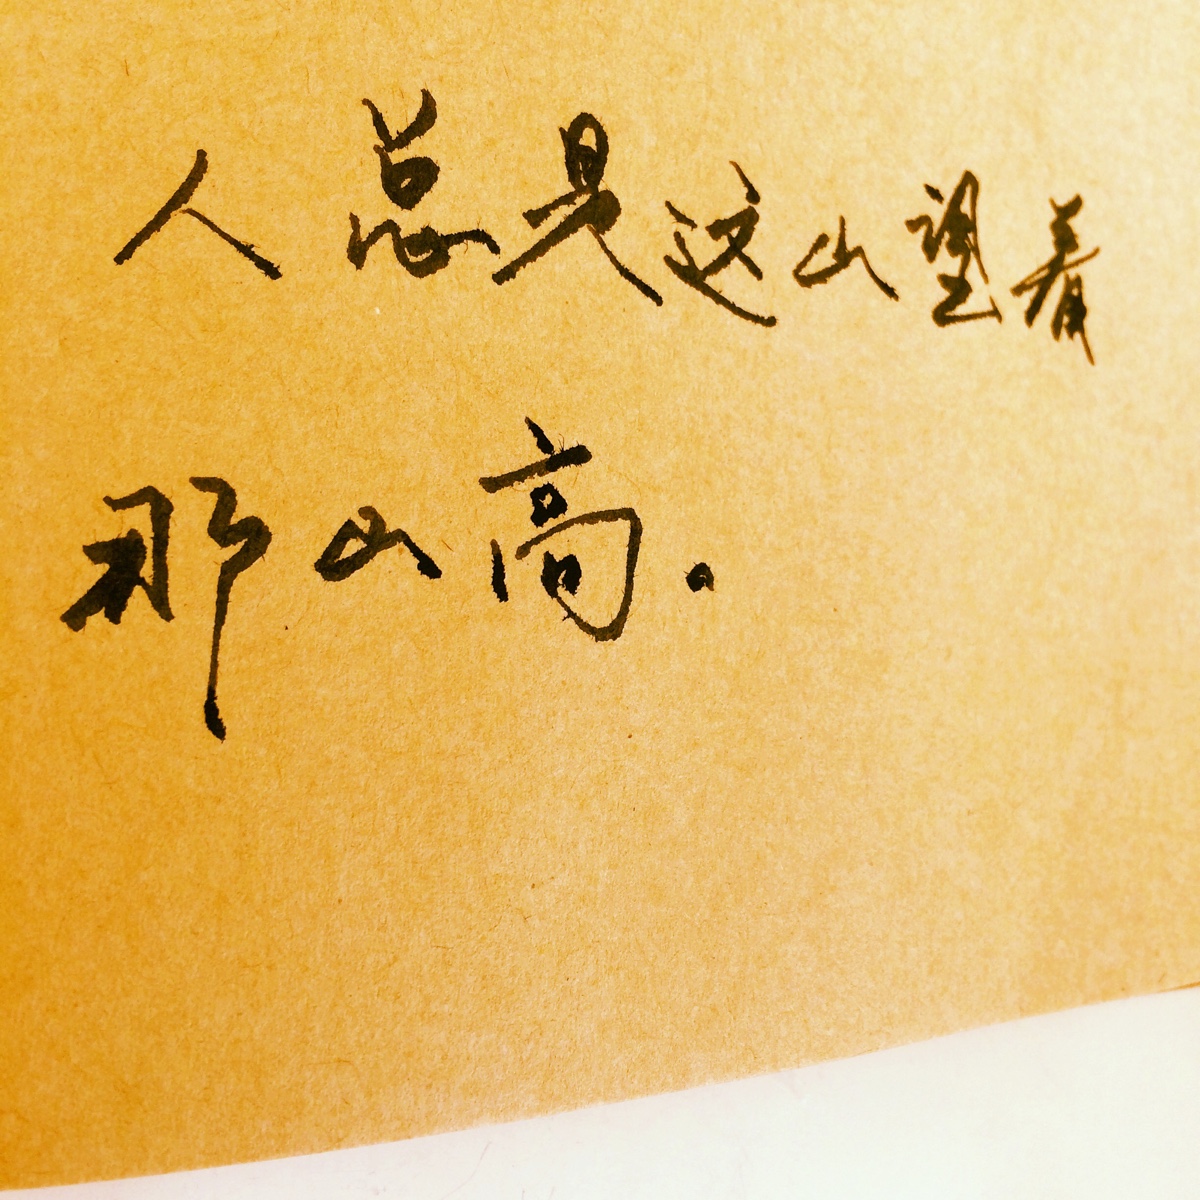 人总是这山望着
那山高。